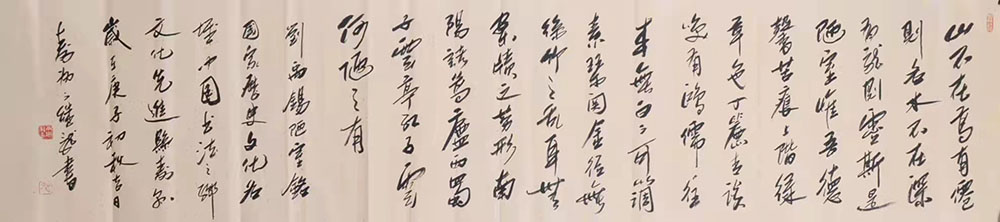 山不在高有僊
則名水不在深
有龍則靈斯是
陋室惟吾德
馨苔痕上階緑
草色入簾青談
笑有鴻儒往
來無白丁可調
素琴閱金經無
絲竹之亂耳無
案牘之勞形南
陽諸葛廬西蜀
子雲亭孔子云
何陋之有
劉禹錫陋室銘
國家歷史文化名
城中國書法之鄉
文化先進縣壽
歲在庚子初秋吉日
書